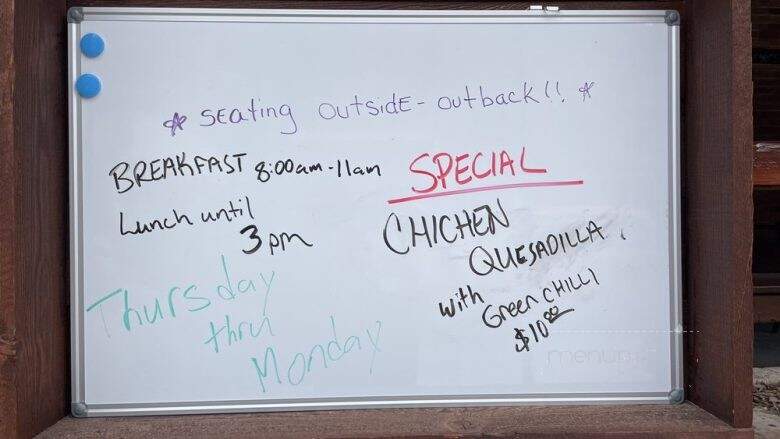 * SEating OutsidE - outback!! *
BREAKFAST 8:00am - 11am
Lunch until
3 pm
Thursday
thru
Monday
SPECIAL
CHICHEN
QUESADILLA
with
Green CHILLI
$10.00